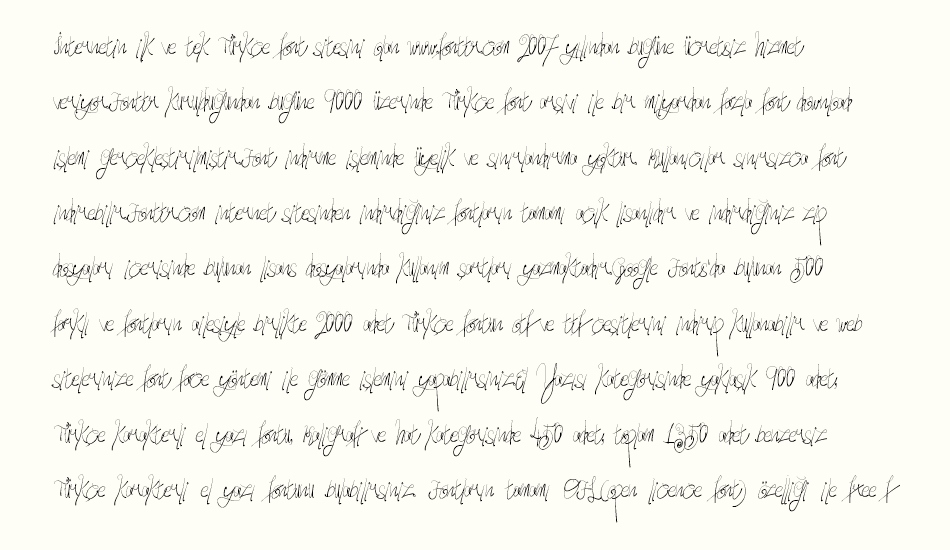 İnternetin ilk ve tek Türkçe font sitesini olan www.fonttr.com 2007 yılından bugüne ücretsiz hizmet
veriyor.Fonttr kurulduğundan bugüne 9000 üzerinde Türkçe font arşivi ile bir milyondan fazla font download
işlemi gerçekleştirilmiştir.Font indirme işleminde üyelik ve sınırlandırma yoktur. Kullanıcılar sınırsızca font
indirebilir.Fonttr.com internet sitesinden indirdiğiniz fontların tamamı açık lisanlıdır ve indirdiğiniz zip
dosyaları içerisinde bulunan lisans dosyalarında kullanım şartları yazmaktadır.Google Fonts'da bulunan 500
farklı ve fontların ailesiyle birlikte 2000 adet Türkçe fontun otf ve ttf çeşitlerini indirip kullanabilir ve web
sitelerinize font face yöntemi ile gömme işlemini yapabilirsiniz.El Yazısı kategorisinde yaklaşık 900 adet.
Türkçe karakterli el yazı fontu, Kaligrafi ve hat kategorisinde 450 adet. toplam 1350 adet benzersiz
Türkçe karakterli el yazı fontunu bulabilirsiniz. Fontların tamamı OFL(open licence font) özelliği ile free f